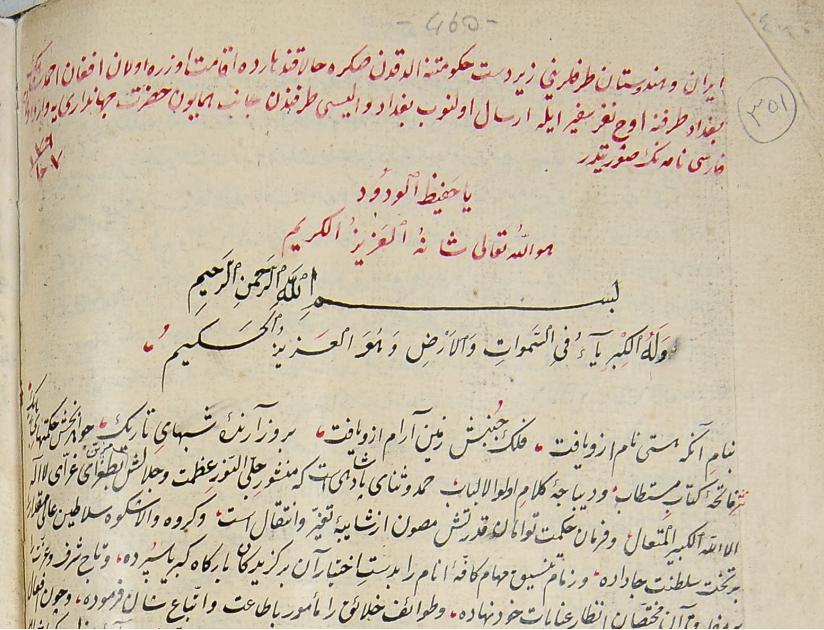 -460-
٣٥١
ایران و هندوستان طرفلرینی زیر دست حکومتنه الدقدن صکره حالا قندهارده اقامت اوزره اولان افغان احمد
بغداد طرفنه اوچ نفر سفیر ایله ارسال اولنوب بغداد والیسی طرفندن جانب همایون حضرت جهانداری یه
فارسی نامه نک صورتیدر
یا حفیظ الودود
هو الله تعالی شانه العزیز الکریم
بسم الله الرحمن الرحیم
وَلَهُ الکِبْرِیآءُ فِی السَّمٰواتِ وَالاَرْضِ وَهُوَ العَزیزُ الحَکیم
بنام آنکه هستی نام ازو یافت فلک جنبش زمین آرام ازو یافت بروز آرندهٔ شبهای تاریک
فاتحهٔ کتاب مستطاب و دیباجهٔ کلام اولو الالباب حمد و ثنای پادشاهی است که منشور جلی النور عظمت و جلالش بطغرای غرای لا اله
الا الله الکبیر المتعال و فرمان حکمت توامان قدرتش مصون از شایبهٔ تغیر و انتقال است و کروه والاشکوه سلاطین
بر تخت سلطنت جا داده و زمام تنسیق مهام کافهٔ انام را بدست اختیار آن برگزیدگان بارگاه کبریا سپرده و تاج شرف و عزت
آن مختصان انظار عنایات خود نهاده و طوائف خلائق را مأمور باطاعت و اتباع شان فرموده و چون